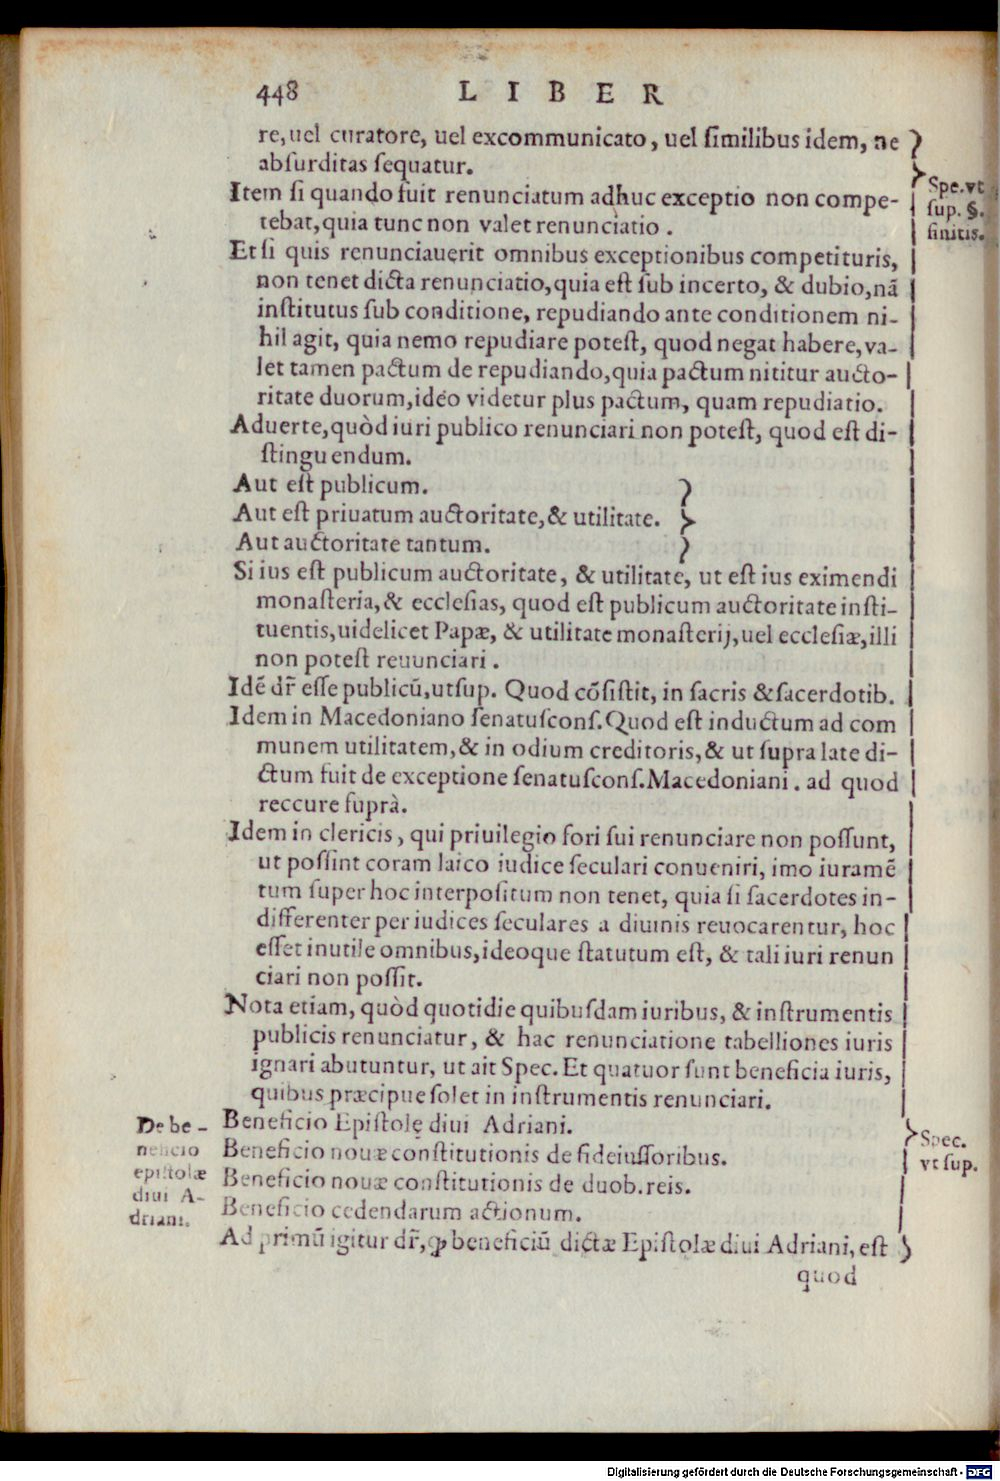 448 LIBER
re, uel curatore, uel excommunicato, uel ſimilibus idem, ne
abſurditas ſequatur.
Item ſi quando fuit renunciatum adhuc exceptio non compe-
tebat, quia tunc non valet renunciatio.
Spe. vt
ſup. §.
finitis.
Et ſi quis renunciauerit omnibus exceptionibus competituris,
non tenet dicta renunciatio, quia eſt ſub incerto, & dubio, nã
inſtitutus ſub conditione, repudiando ante conditionem ni-
hil agit, quia nemo repudiare poteſt, quod negat habere, va-
let tamen pactum de repudiando, quia pactum nititur aucto-
ritate duorum, ideo videtur plus pactum, quam repudiatio.
Aduerte, quòd iuri publico renunciari non poteſt, quod eſt di-
ſtinguendum.
Aut eſt publicum.
Aut eſt priuatum auctoritate, & utilitate.
Aut auctoritate tantum.
Si ius eſt publicum auctoritate, & utilitate, ut eſt ius eximendi
monaſteria, & eccleſias, quod eſt publicum auctoritate inſti-
tuentis, uidelicet Papæ, & utilitate monaſterij, uel eccleſiæ, illi
non poteſt reuunciari.
Idẽ dr̃ eſſe publicũ, utſup. Quod cõſiſtit, in ſacris & ſacerdotib.
Idem in Macedoniano ſenatuſconſ. Quod eſt inductum ad com
munem utilitatem, & in odium creditoris, & ut ſupra late di-
ctum fuit de exceptione ſenatuſconſ. Macedoniani. ad quod
reccure ſuprà.
Idem in clericis, qui priuilegio fori ſui renunciare non poſſunt,
ut poſſint coram laico iudice ſeculari conueniri, imo iuramẽ
tum ſuper hoc interpoſitum non tenet, quia ſi ſacerdotes in-
differenter per iudices ſeculares a diuinis reuocarentur, hoc
eſſet inutile omnibus, ideoque ſtatutum eſt, & tali iuri renun
ciari non poſſit.
Nota etiam, quòd quotidie quibuſdam iuribus, & inſtrumentis
publicis renunciatur, & hac renunciatione tabelliones iuris
ignari abutuntur, ut ait Spec. Et quatuor ſunt beneficia iuris,
quibus præcipue ſolet in inſtrumentis renunciari.
De be-
neficio
epiſtolæ
diui A-
driani.
Beneficio Epiſtolę diui Adriani.
Beneficio nouæ conſtitutionis de fideiuſſoribus.
Beneficio nouæ conſtitutionis de duob. reis.
Beneficio cedendarum actionum.
Spec.
vt ſup.
Ad primũ igitur dr̃, ꝙ beneficiũ dictæ Epiſtolæ diui Adriani, eſt
quod
Digitalisierung gefördert durch die Deutsche Forschungsgemeinschaft - DFG